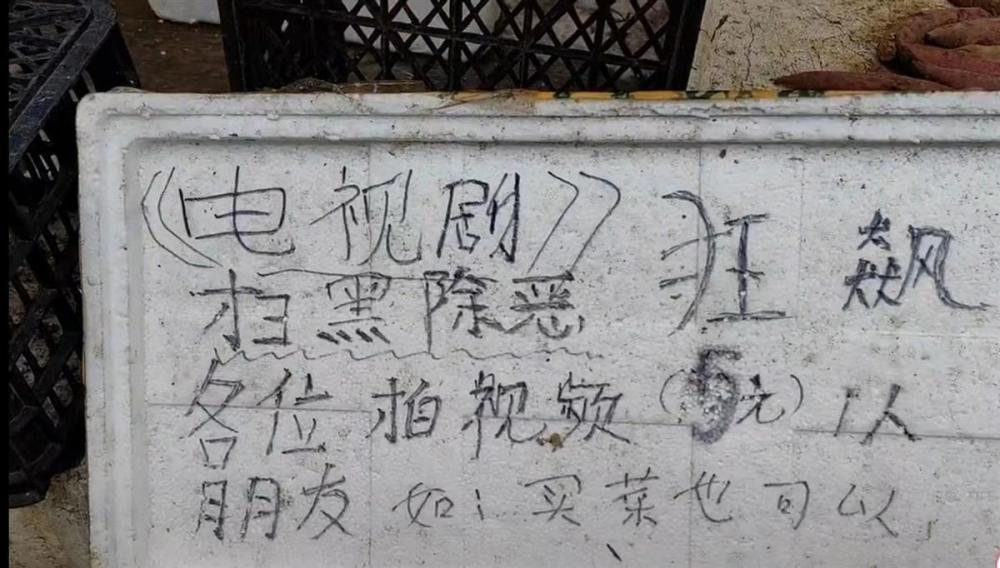 《电视剧》 狂飙
扫黑除恶
各位 拍视频(5元)1人
朋友 如：买菜也可以